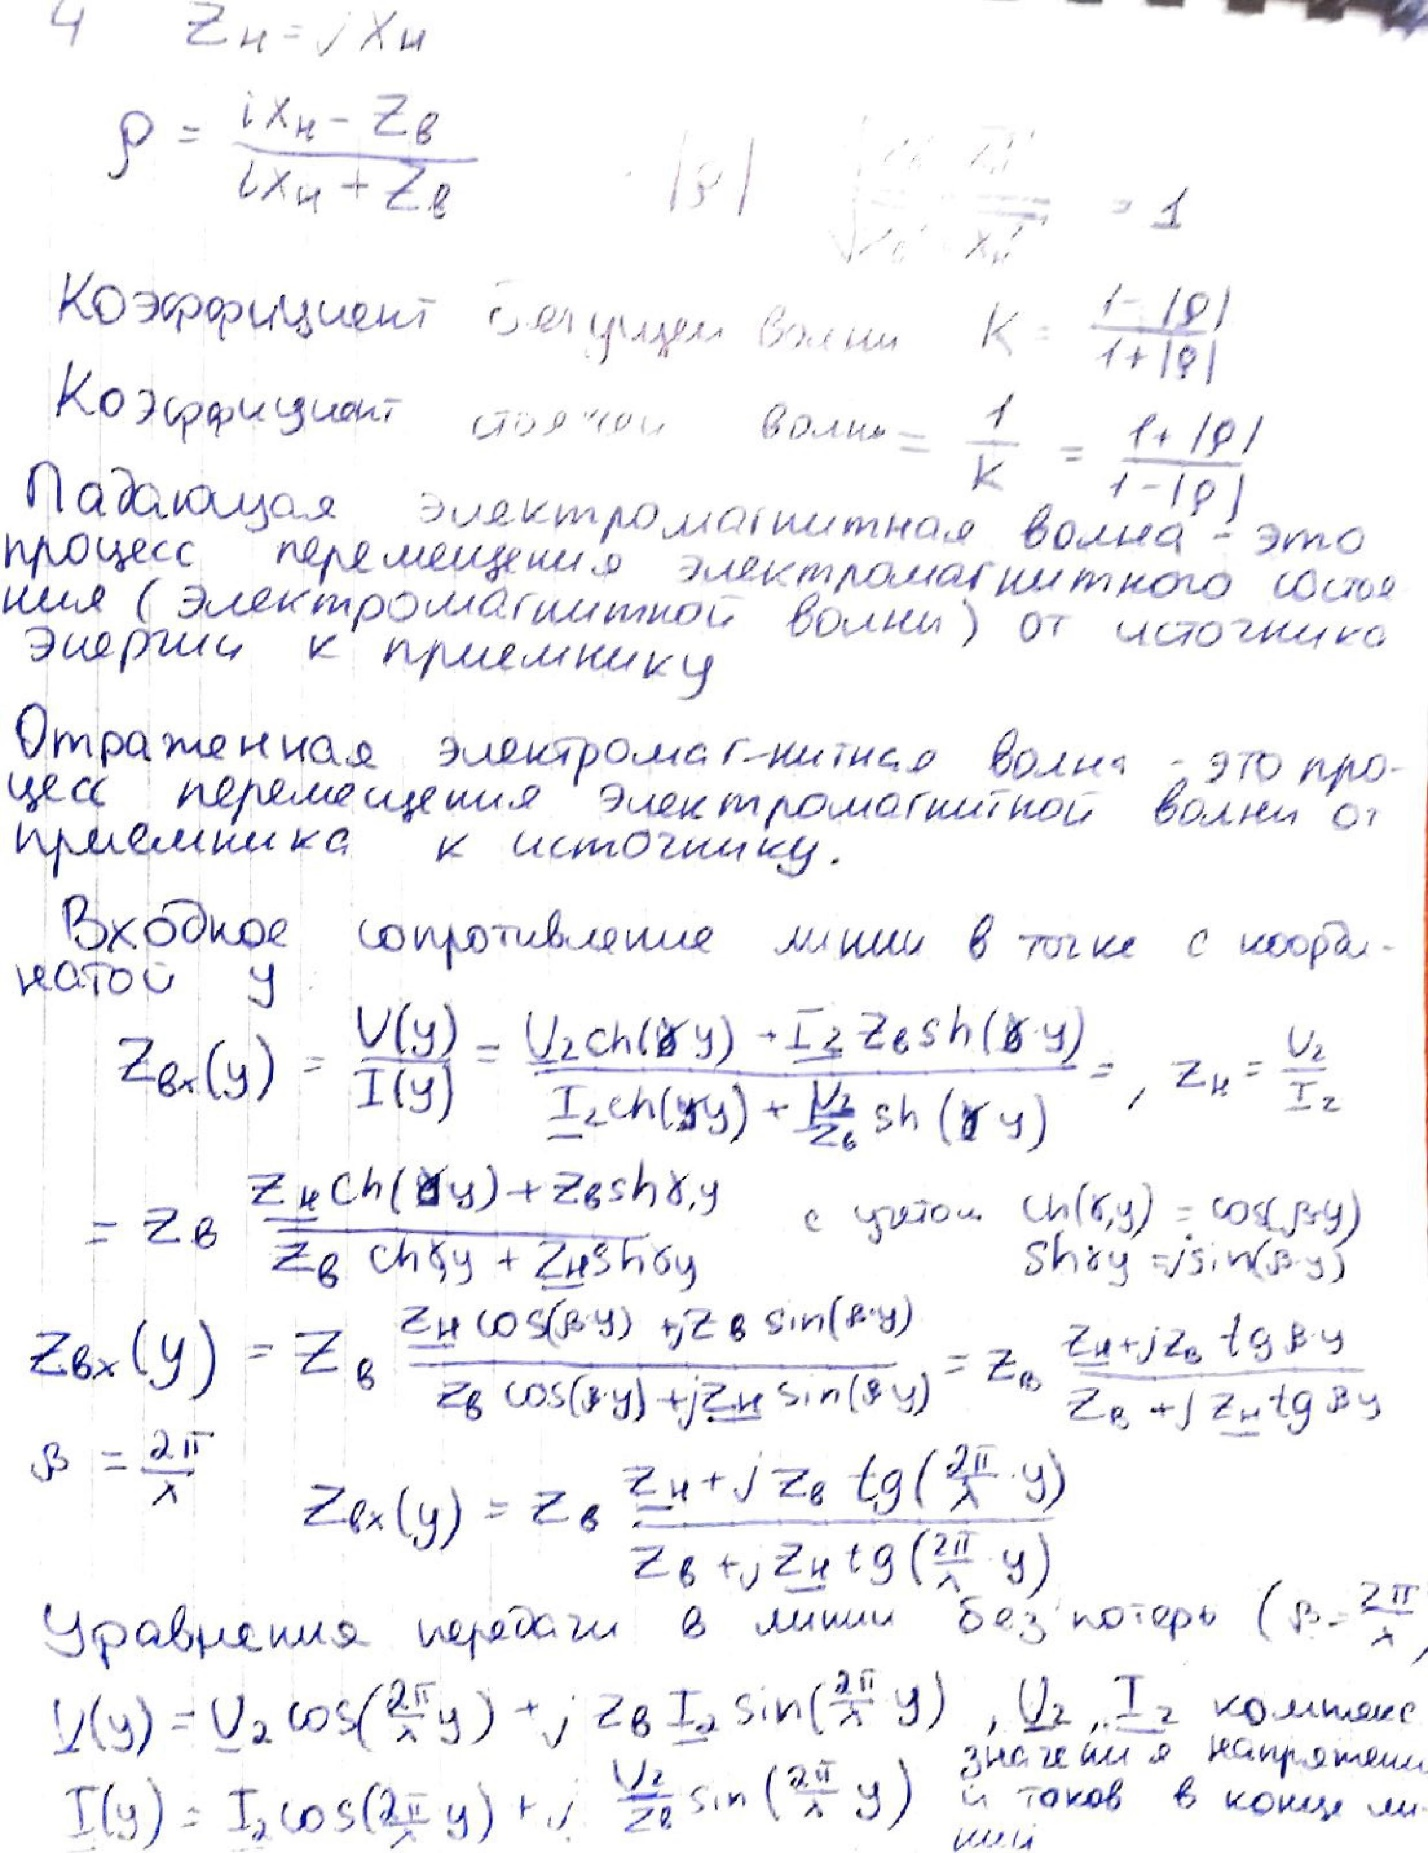 4 Zн = jXн
ρ = (iXн - Zв) / (iXн + Zв) |ρ| = 1
Коэффициент бегущей волны K = (1 - |ρ|) / (1 + |ρ|)
Коэффициент стоячей волны = 1/K = (1 + |ρ|) / (1 - |ρ|)
Падающая электромагнитная волна - это
процесс перемещения электромагнитного состоя
ния (электромагнитной волны) от источника
энергии к приемнику
Отраженная электромаг-нитная волна - это про-
цесс перемещения электромагнитной волны от
приемника к источнику.
Входное сопротивление линии в точке с коорди-
натой y
Zвх(y) = U(y)/I(y) = (U₂ch(γy) + I₂Zвsh(γ·y)) / (I₂ch(γy) + U₂/Zв sh(γy)) = , Zн = U₂/I₂
= Zв (Zнch(γy) + Zвshγ,y) / (Zв chγy + Zнshγy) с учетом ch(γ,y) = cos(β·y)
shγy = jsin(β·y)
Zвх(y) = Zв (Zн cos(β·y) + jZв sin(β·y)) / (Zв cos(β·y) + jZн sin(β·y)) = Zв (Zн + jZв tg β·y) / (Zв + jZн tg βy)
β = 2π/λ
Zвх(y) = Zв (Zн + jZв tg(2π/λ·y)) / (Zв + jZн tg(2π/λ·y))
Уравнения передачи в линии без потерь (β = 2π/λ)
U(y) = U₂ cos(2π/λ y) + j Zв I₂ sin(2π/λ y), U₂, I₂ комплекс
значения напряжени
I(y) = I₂ cos(2π/λ y) + j U₂/Zв sin(2π/λ y) и токов в конце ли-
нии